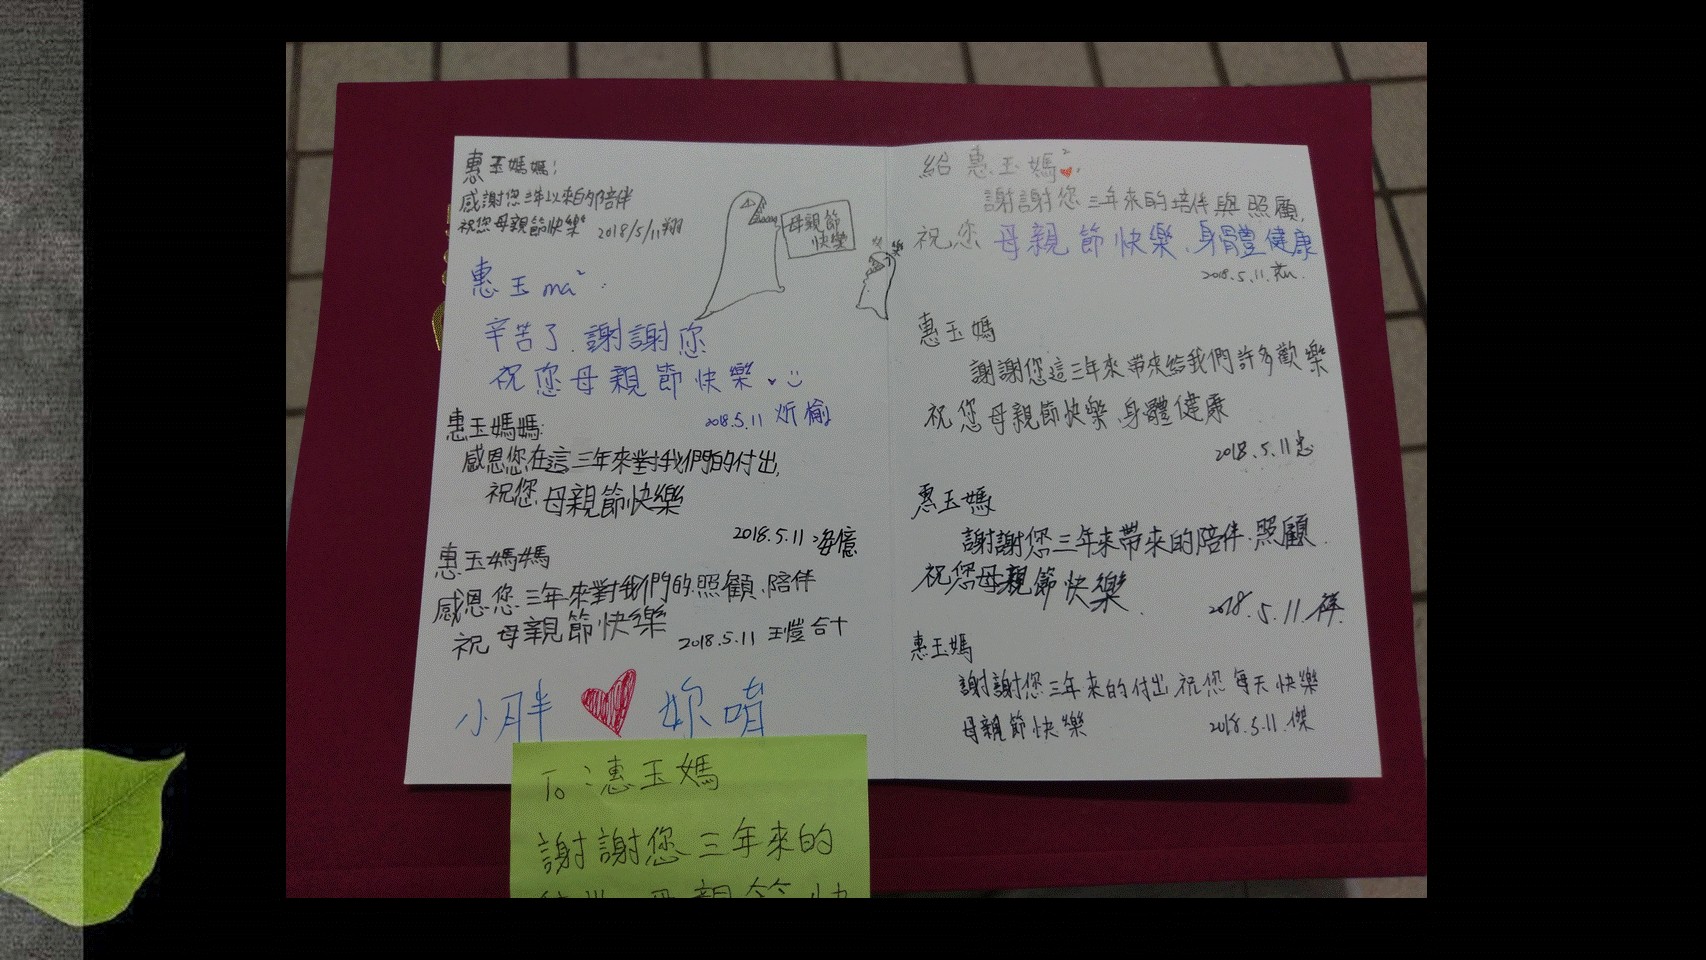 惠玉媽媽:
感謝您三年以來的陪伴
祝您母親節快樂 2018/5/11翔
母親節
快樂
惠玉ma²:
辛苦了、謝謝您
祝您母親節快樂
2018.5.11 炘愉
惠玉媽媽:
感恩您在這三年來對我們的付出,
祝您母親節快樂
2018.5.11
惠玉媽媽
感恩您三年來對我們的照顧、陪伴
祝母親節快樂 2018.5.11
小胖 妳唷
To:惠玉媽
謝謝您三年來的
母親節快
給惠玉媽²
謝謝您三年來的培伴與照顧,
祝您母親節快樂、身體健康
2018.5.11.
惠玉媽
謝謝您這三年來帶來給我們許多歡樂
祝您母親節快樂、身體健康
2018.5.11忠
惠玉媽
謝謝您三年來帶來的陪伴、照顧.
祝您母親節快樂.
2018.5.11.祥
惠玉媽
謝謝您三年來的付出 祝您每天快樂
母親節快樂 2018.5.11.傑